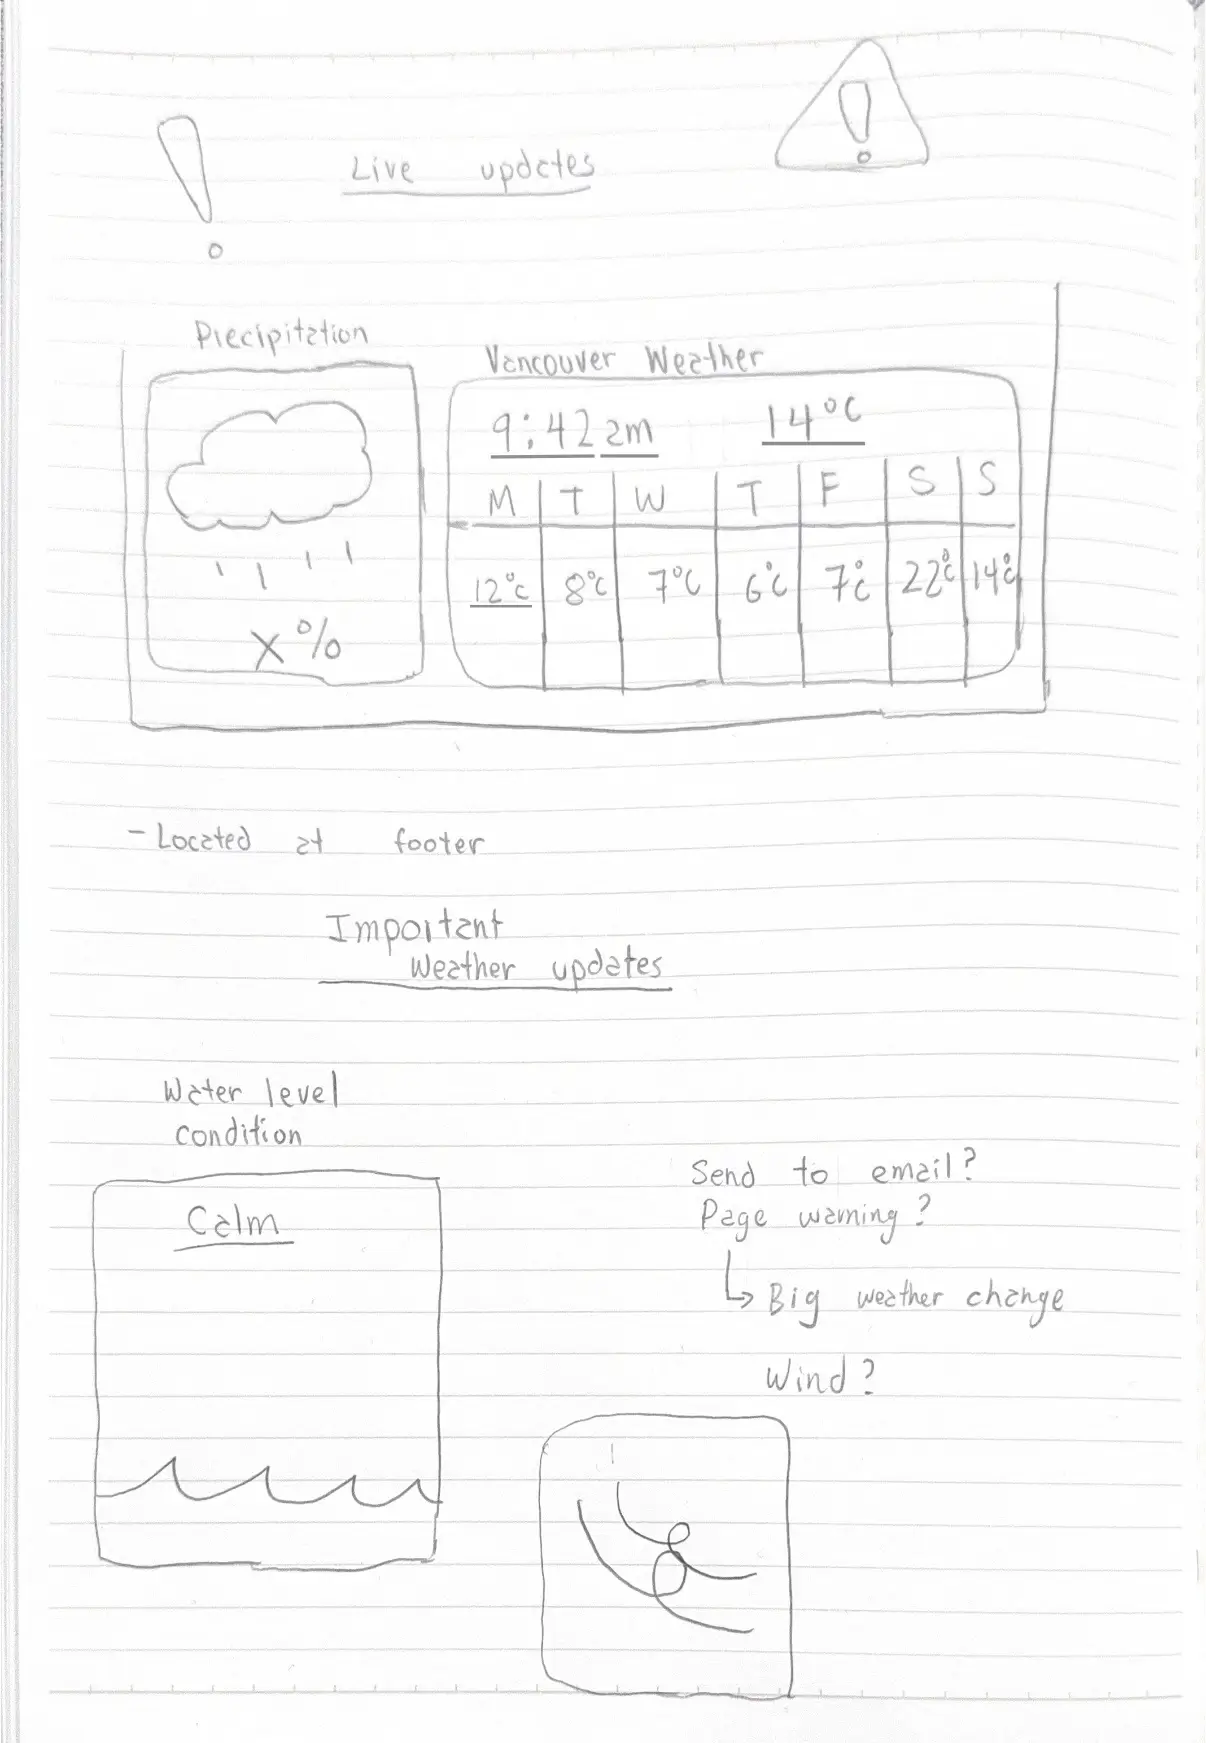 Live updates
Precipitation
Vancouver Weather
9:42 am 14°C
M T W T F S S
12°C 8°C 7°C 6°C 7°C 22°C 14°C
X %
- Located at footer
Important
Weather updates
Water level
condition
Calm
Send to email?
Page warning?
↳ Big weather change
Wind?